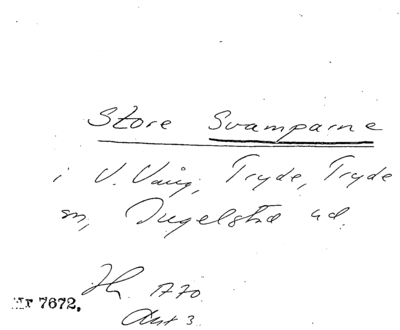 Store Svamparne
i V. Vång, Tryde, Tryde
sn, Ingelstad hd.
Hr. 1770.
Akt 3
Nr 7672.